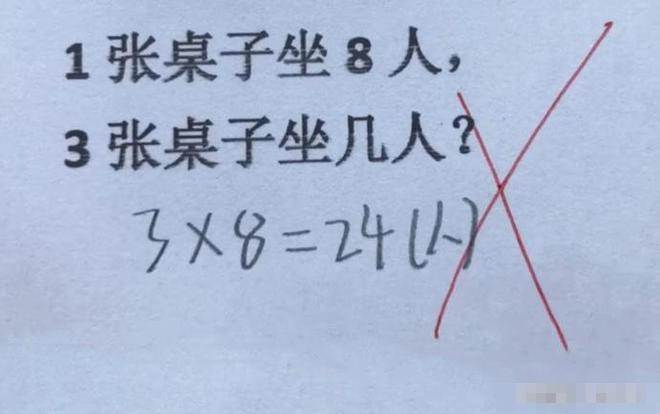 1 张桌子坐 8 人，
3 张桌子坐几人？
3×8=24(人)